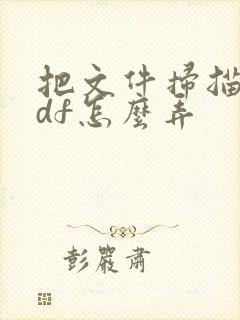 把文件掃描
df怎麼弄
彭嚴肅